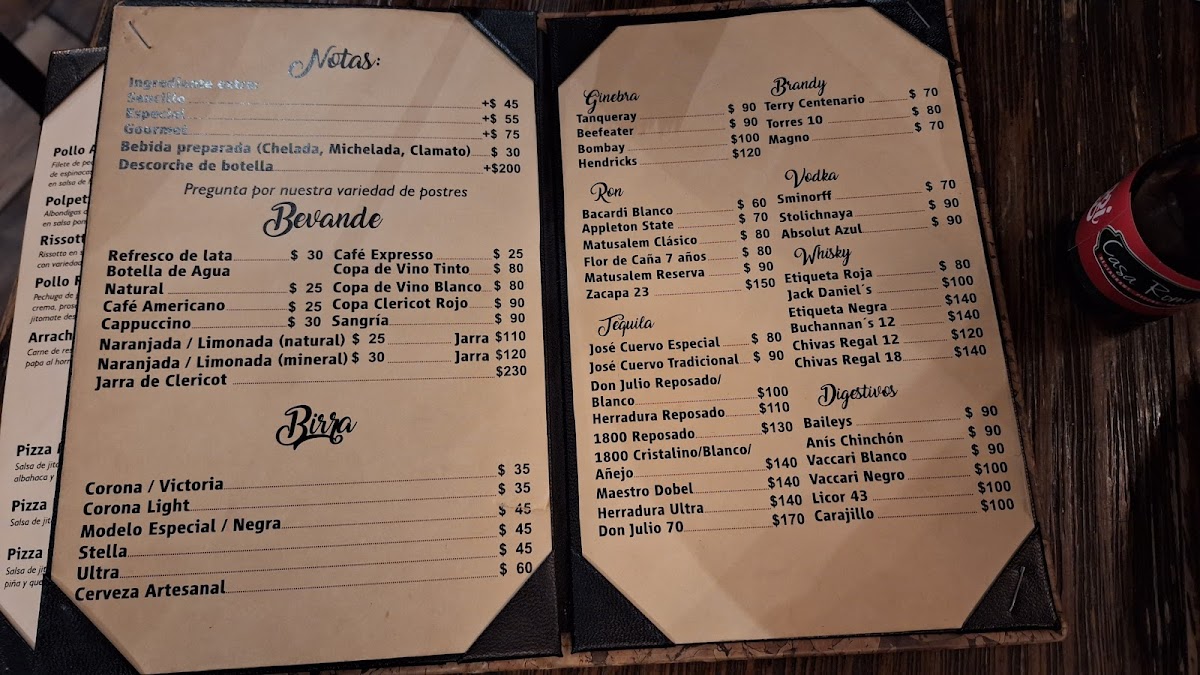 Pollo A
Filete de pec
de espinacas
en salsa de
Polpet
Albondigas
en salsa pom
Risott
Rissotto en
con variedad
Pollo R
Pechuga de
crema, pros
jitomate des
Arrach
Carne de res
papa al horn
Pizza
Salsa de jito
albahaca y
Pizza
Salsa de jit
Pizza
Salsa de jit
piña y que
Notas:
Ingrediente extra:
Sencillo +$ 45
Especial +$ 55
Gourmet +$ 75
Bebida preparada (Chelada, Michelada, Clamato) $ 30
Descorche de botella +$200
Pregunta por nuestra variedad de postres
Bevande
Refresco de lata $ 30
Botella de Agua
Natural $ 25
Café Americano $ 25
Cappuccino $ 30
Café Expresso $ 25
Copa de Vino Tinto $ 80
Copa de Vino Blanco $ 80
Copa Clericot Rojo $ 90
Sangría $ 90
Naranjada / Limonada (natural) $ 25 Jarra $110
Naranjada / Limonada (mineral) $ 30 Jarra $120
Jarra de Clericot $230
Birra
Corona / Victoria $ 35
Corona Light $ 35
Modelo Especial / Negra $ 45
Stella $ 45
Ultra $ 45
Cerveza Artesanal $ 60
Ginebra
Tanqueray $ 90
Beefeater $ 90
Bombay $100
Hendricks $120
Ron
Bacardi Blanco $ 60
Appleton State $ 70
Matusalem Clásico $ 80
Flor de Caña 7 años $ 80
Matusalem Reserva $ 90
Zacapa 23 $150
Tequila
José Cuervo Especial $ 80
José Cuervo Tradicional $ 90
Don Julio Reposado/
Blanco $100
Herradura Reposado $110
1800 Reposado $130
1800 Cristalino/Blanco/
Añejo $140
Maestro Dobel $140
Herradura Ultra $140
Don Julio 70 $170
Brandy
Terry Centenario $ 70
Torres 10 $ 80
Magno $ 70
Vodka
Sminorff $ 70
Stolichnaya $ 90
Absolut Azul $ 90
Whisky
Etiqueta Roja $ 80
Jack Daniel´s $100
Etiqueta Negra $140
Buchannan´s 12 $140
Chivas Regal 12 $120
Chivas Regal 18 $140
Digestivos
Baileys $ 90
Anís Chinchón $ 90
Vaccari Blanco $ 90
Vaccari Negro $100
Licor 43 $100
Carajillo $100
Casa Rom